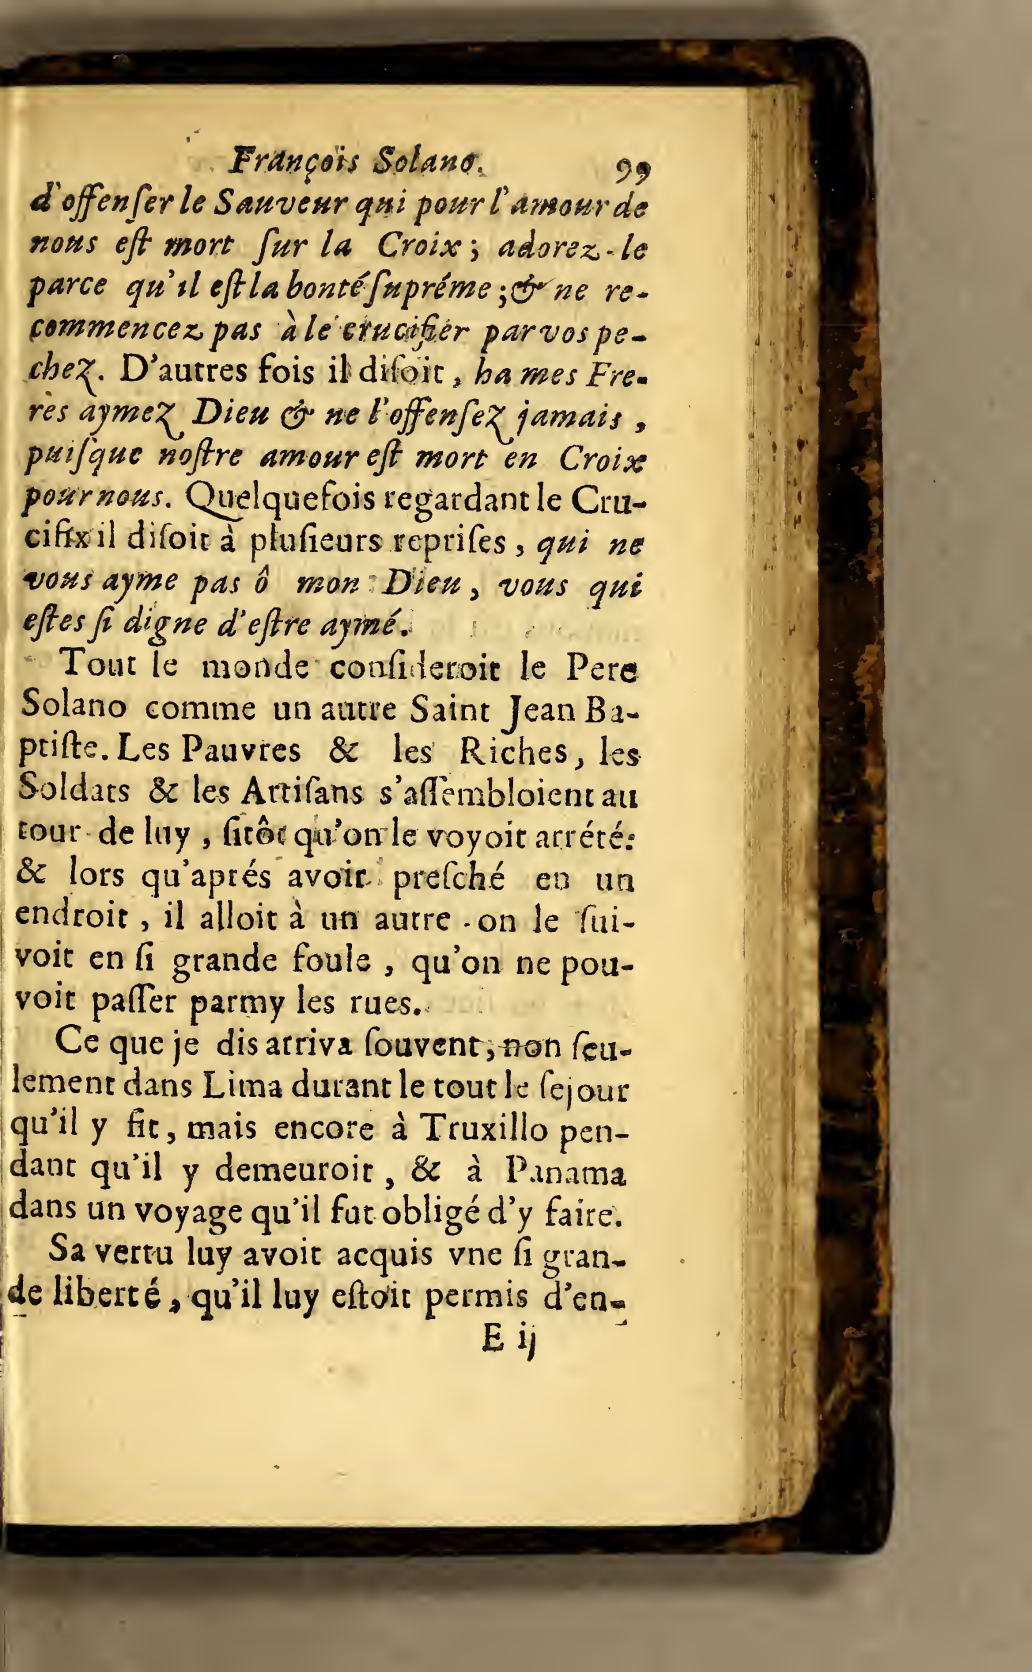 François Solano. 99
d'offenſer le Sauveur qui pour l'amour de
nous eſt mort ſur la Croix; adorez-le
parce qu'il eſt la bonté ſupréme; & ne re-
commencez pas à le crucifier par vos pe-
chez. D'autres fois il diſoit, ha mes Fre-
res aymez Dieu & ne l'offenſez jamais,
puiſque noſtre amour eſt mort en Croix
pour nous. Quelquefois regardant le Cru-
cifix il diſoit à pluſieurs repriſes, qui ne
vous ayme pas ô mon Dieu, vous qui
eſtes ſi digne d'eſtre aymé.
Tout le monde conſideroit le Pere
Solano comme un autre Saint Jean Ba-
ptiſte. Les Pauvres & les Riches, les
Soldats & les Artiſans s'aſſembloient au
tour de luy, ſitôt qu'on le voyoit arrété:
& lors qu'aprés avoir preſché en un
endroit, il alloit à un autre on le ſui-
voit en ſi grande foule, qu'on ne pou-
voit paſſer parmy les rues.
Ce que je dis arriva ſouvent, non ſeu-
lement dans Lima durant le tout le ſejour
qu'il y fit, mais encore à Truxillo pen-
dant qu'il y demeuroit, & à Panama
dans un voyage qu'il fut obligé d'y faire.
Sa vertu luy avoit acquis vne ſi gran-
de liberté, qu'il luy eſtoit permis d'en-
E ij